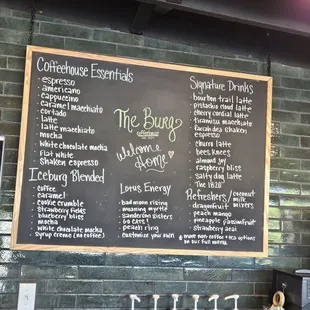 Coffeehouse Essentials
• espresso
• americano
• cappuccino
• caramel macchiato
• cortado
• latte
• latte macchiato
• mocha
• white chocolate mocha
• flat white
• shaken espresso
Iceburg Blended
• coffee
• caramel
• cookie crumble
• strawberry fields
• blueberry bites
• mocha
• white chocolate mocha
• syrup creme (no coffee)
The Burg
coffeehouse
Welcome
Home
Lotus Energy
• bad moon rising
• meaning myrtle
• sanderson sisters
• go cats!
• peach ring
• customize your own
Signature Drinks
• bourbon trail latte
• pistachio cloud latte
• cherry cordial latte
• tiramisu macchiato
shaken
espresso
• churro latte
• bees knees
• almond joy
• raspberry bliss
• salty dog latte
• the "1820"
Refreshers/coconut
milk
mixers
• dragonfruit
• peach mango
• pineapple passionfruit
• strawberry acai
* more non-coffee + tea options
on our full menu